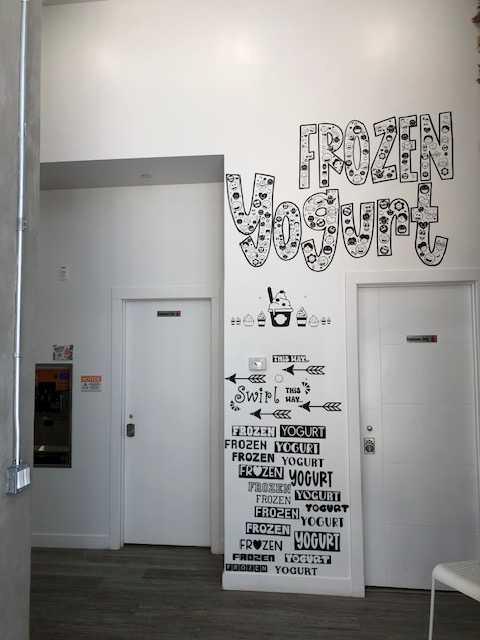 FROZEN
Yogurt
THIS WAY...
Swirl THIS WAY...
FROZEN YOGURT
FROZEN YOGURT
FROZEN YOGURT
FROZEN YOGURT
FROZEN YOGURT
FROZEN YOGURT
FROZEN YOGURT
FROZEN YOGURT
FROZEN YOGURT
FROZEN YOGURT
NOTICE